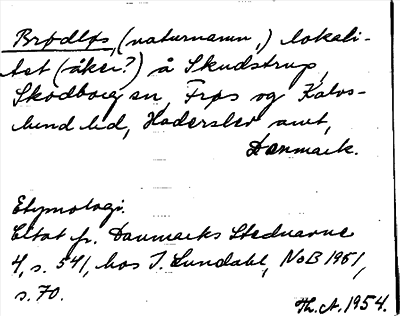 Brødløs, (naturnamn,) lokali-
tet (åker?) å Skudstrup,
Skodborg sn, Frøs og Kalvs-
lund hd, Haderslev amt,
Danmark.
Etymologi.
Citat fr. Danmarks Stednavne
4, s. 541, hos I. Lundahl, NoB 1961,
s. 70.
Th. A. 1954.